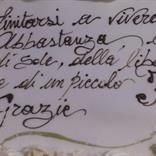 limitarsi a vivere
Abbastanza
di sole, della libe
e di un piccolo
Grazie